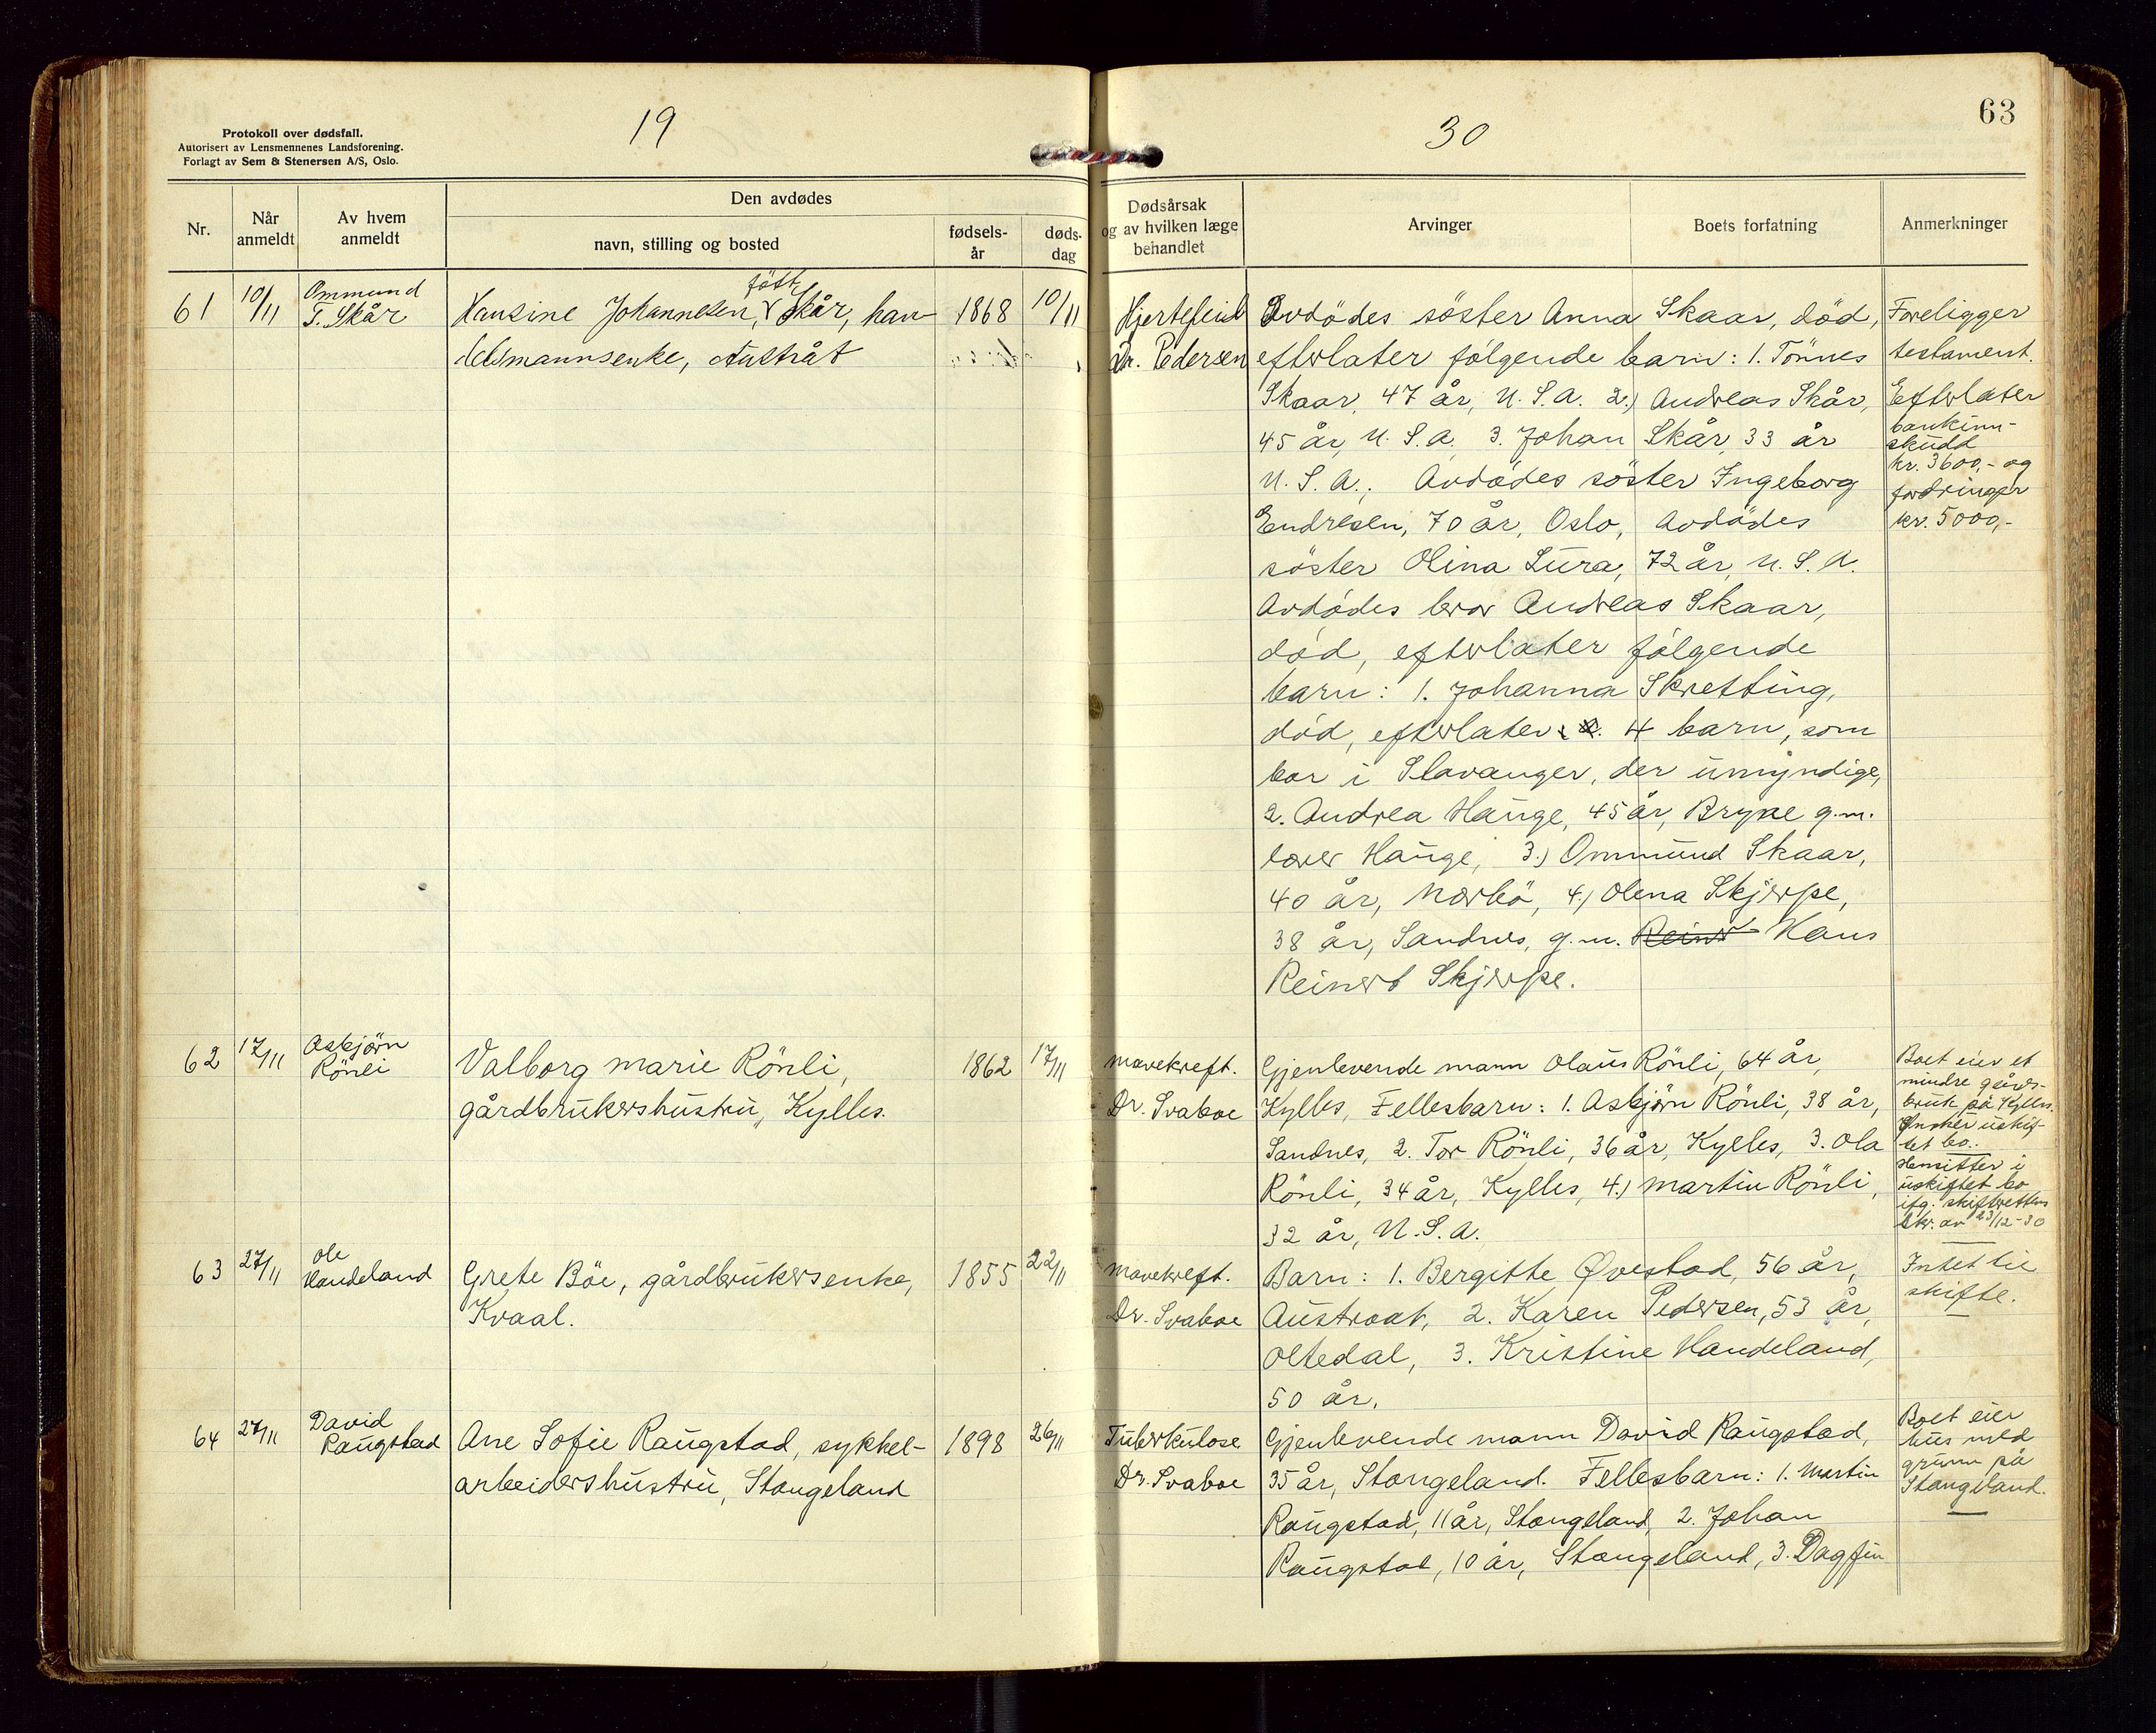 Protokoll over dødsfall.
Autorisert av Lensmennenes Landsforening.
Forlagt av Sem & Stenersen A/S, Oslo.
19
30
63
Nr.
Når anmeldt
Av hvem anmeldt
Den avdødes
navn, stilling og bosted
fødsels-år
døds-dag
Dødsårsak
og av hvilken læge
behandlet
Arvinger
Boets forfatning
Anmerkninger
61
10/11
Ommund
T. Skår
Hansine Johannesen, født Skår, han-
delsmannsenke, Austråt
1868
10/11
Hjertefeil
Dr. Pedersen
Avdødes søster Anna Skaar, død,
efterlater følgende barn: 1. Tönnes
Skaar, 47 år, U.S.A. 2.) Andreas Skår,
45 år, U.S.A. 3. Johan Skår, 33 år
U.S.A., Avdødes søster Ingeborg
Endresen, 70 år, Oslo, Avdødes
søster Olina Lura, 72 år, U.S.A.
Avdødes bror Andreas Skaar,
død, efterlater følgende
barn: 1. Johanna Skretting,
død, efterlater 4 barn, som
bor i Stavanger, der umyndige,
2. Andrea Hauge, 45 år, Bryne g.m.
lærer Hauge, 3.) Ommund Skaar,
40 år, Nærbö, 4.) Olena Skjerpe,
38 år, Sandnes, g.m. Reiner Hans
Reinert Skjerpe.
Foreligger
testament.
Efterlater
bankinn-
skudd
kr. 3600,- og
fordringer
kr. 5000,-
62
17/11
Asbjørn
Rönli
Valborg Marie Rönli,
gårdbrukershustru, Kylles.
1862
17/11
Mavekreft.
Dr. Svaboe
Gjenlevende mann Olaus Rönli, 64 år,
Kylles, Fellesbarn: 1. Asbjørn Rönli, 38 år,
Sandnes, 2. Tor Rönli, 36 år, Kylles, 3. Ola
Rönli, 34 år, Kylles, 4.) Martin Rönli,
32 år, U.S.A.
Boet eier et
mindre gårds-
bruk på Kylles.
Ønsker uskif-
tet bo.
Hensitter i
uskiftet bo
ifg. skifterettens
skr. av 23/12-30
63
27/11
Ole
Handeland
Grete Böe, gårdbrukersenke,
Kvaal.
1855
22/11
Mavekreft.
Dr. Svaboe
Barn: 1. Bergitte Øvestad, 56 år,
Austraat, 2. Karen Pedersen, 53 år,
Oltedal, 3. Kristine Handeland,
50 år.
Intet til
skifte.
64
27/11
David
Raugstad
Ane Sofie Raugstad, sykkel-
arbeidershustru, Stangeland
1898
26/11
Tuberkulose
Dr. Svaboe
Gjenlevende mann David Raugstad,
35 år, Stangeland. Fellesbarn: 1. Martin
Raugstad, 11 år, Stangeland, 2. Johan
Raugstad, 10 år, Stangeland, 3. Dagfin
Boet eier
hus med
grunn på
Stangeland.